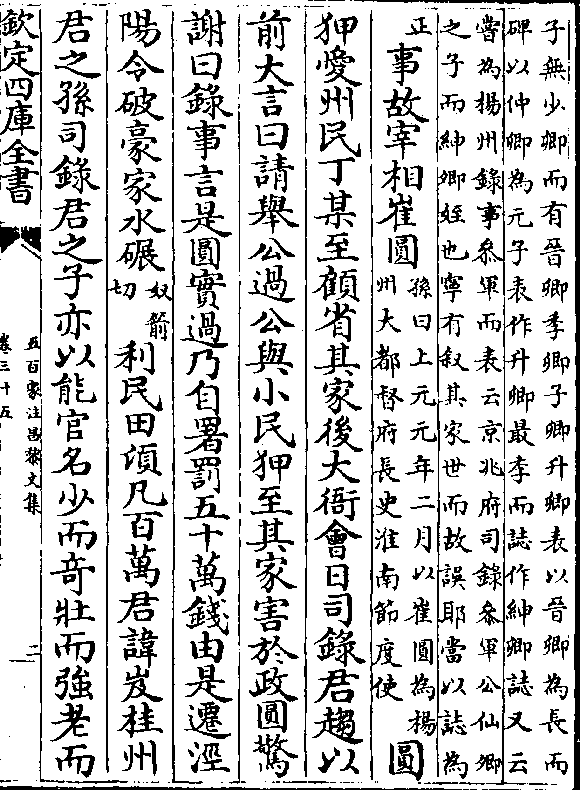 子無少卿而有晉卿季卿子卿升卿表以晉卿為長而
碑以仲卿為元子表作升卿最季而誌作紳卿誌又云
嘗為楊州錄事參軍而表云京兆府司錄參軍公仙卿
之子而紳卿姪也寧有叙其家世而故誤耶當以誌為
正 事故宰相崔圓 孫曰上元元年二月以崔圓為楊州大都督府長史淮南節度使 圓
狎愛州民丁某至顧省其家後大衙會日司錄君趨以
前大言曰請舉公過公與小民狎至其家害於政圓驚
謝曰錄事言是圓實過乃自署罰五十萬錢由是遷涇
陽令破豪家水碾 奴箭切 利民田頃凡百萬君諱岌桂州
君之孫司錄君之子亦以能官名少而奇壯而強老而
欽定四庫全書
五百家注昌黎文集
卷三十五
二